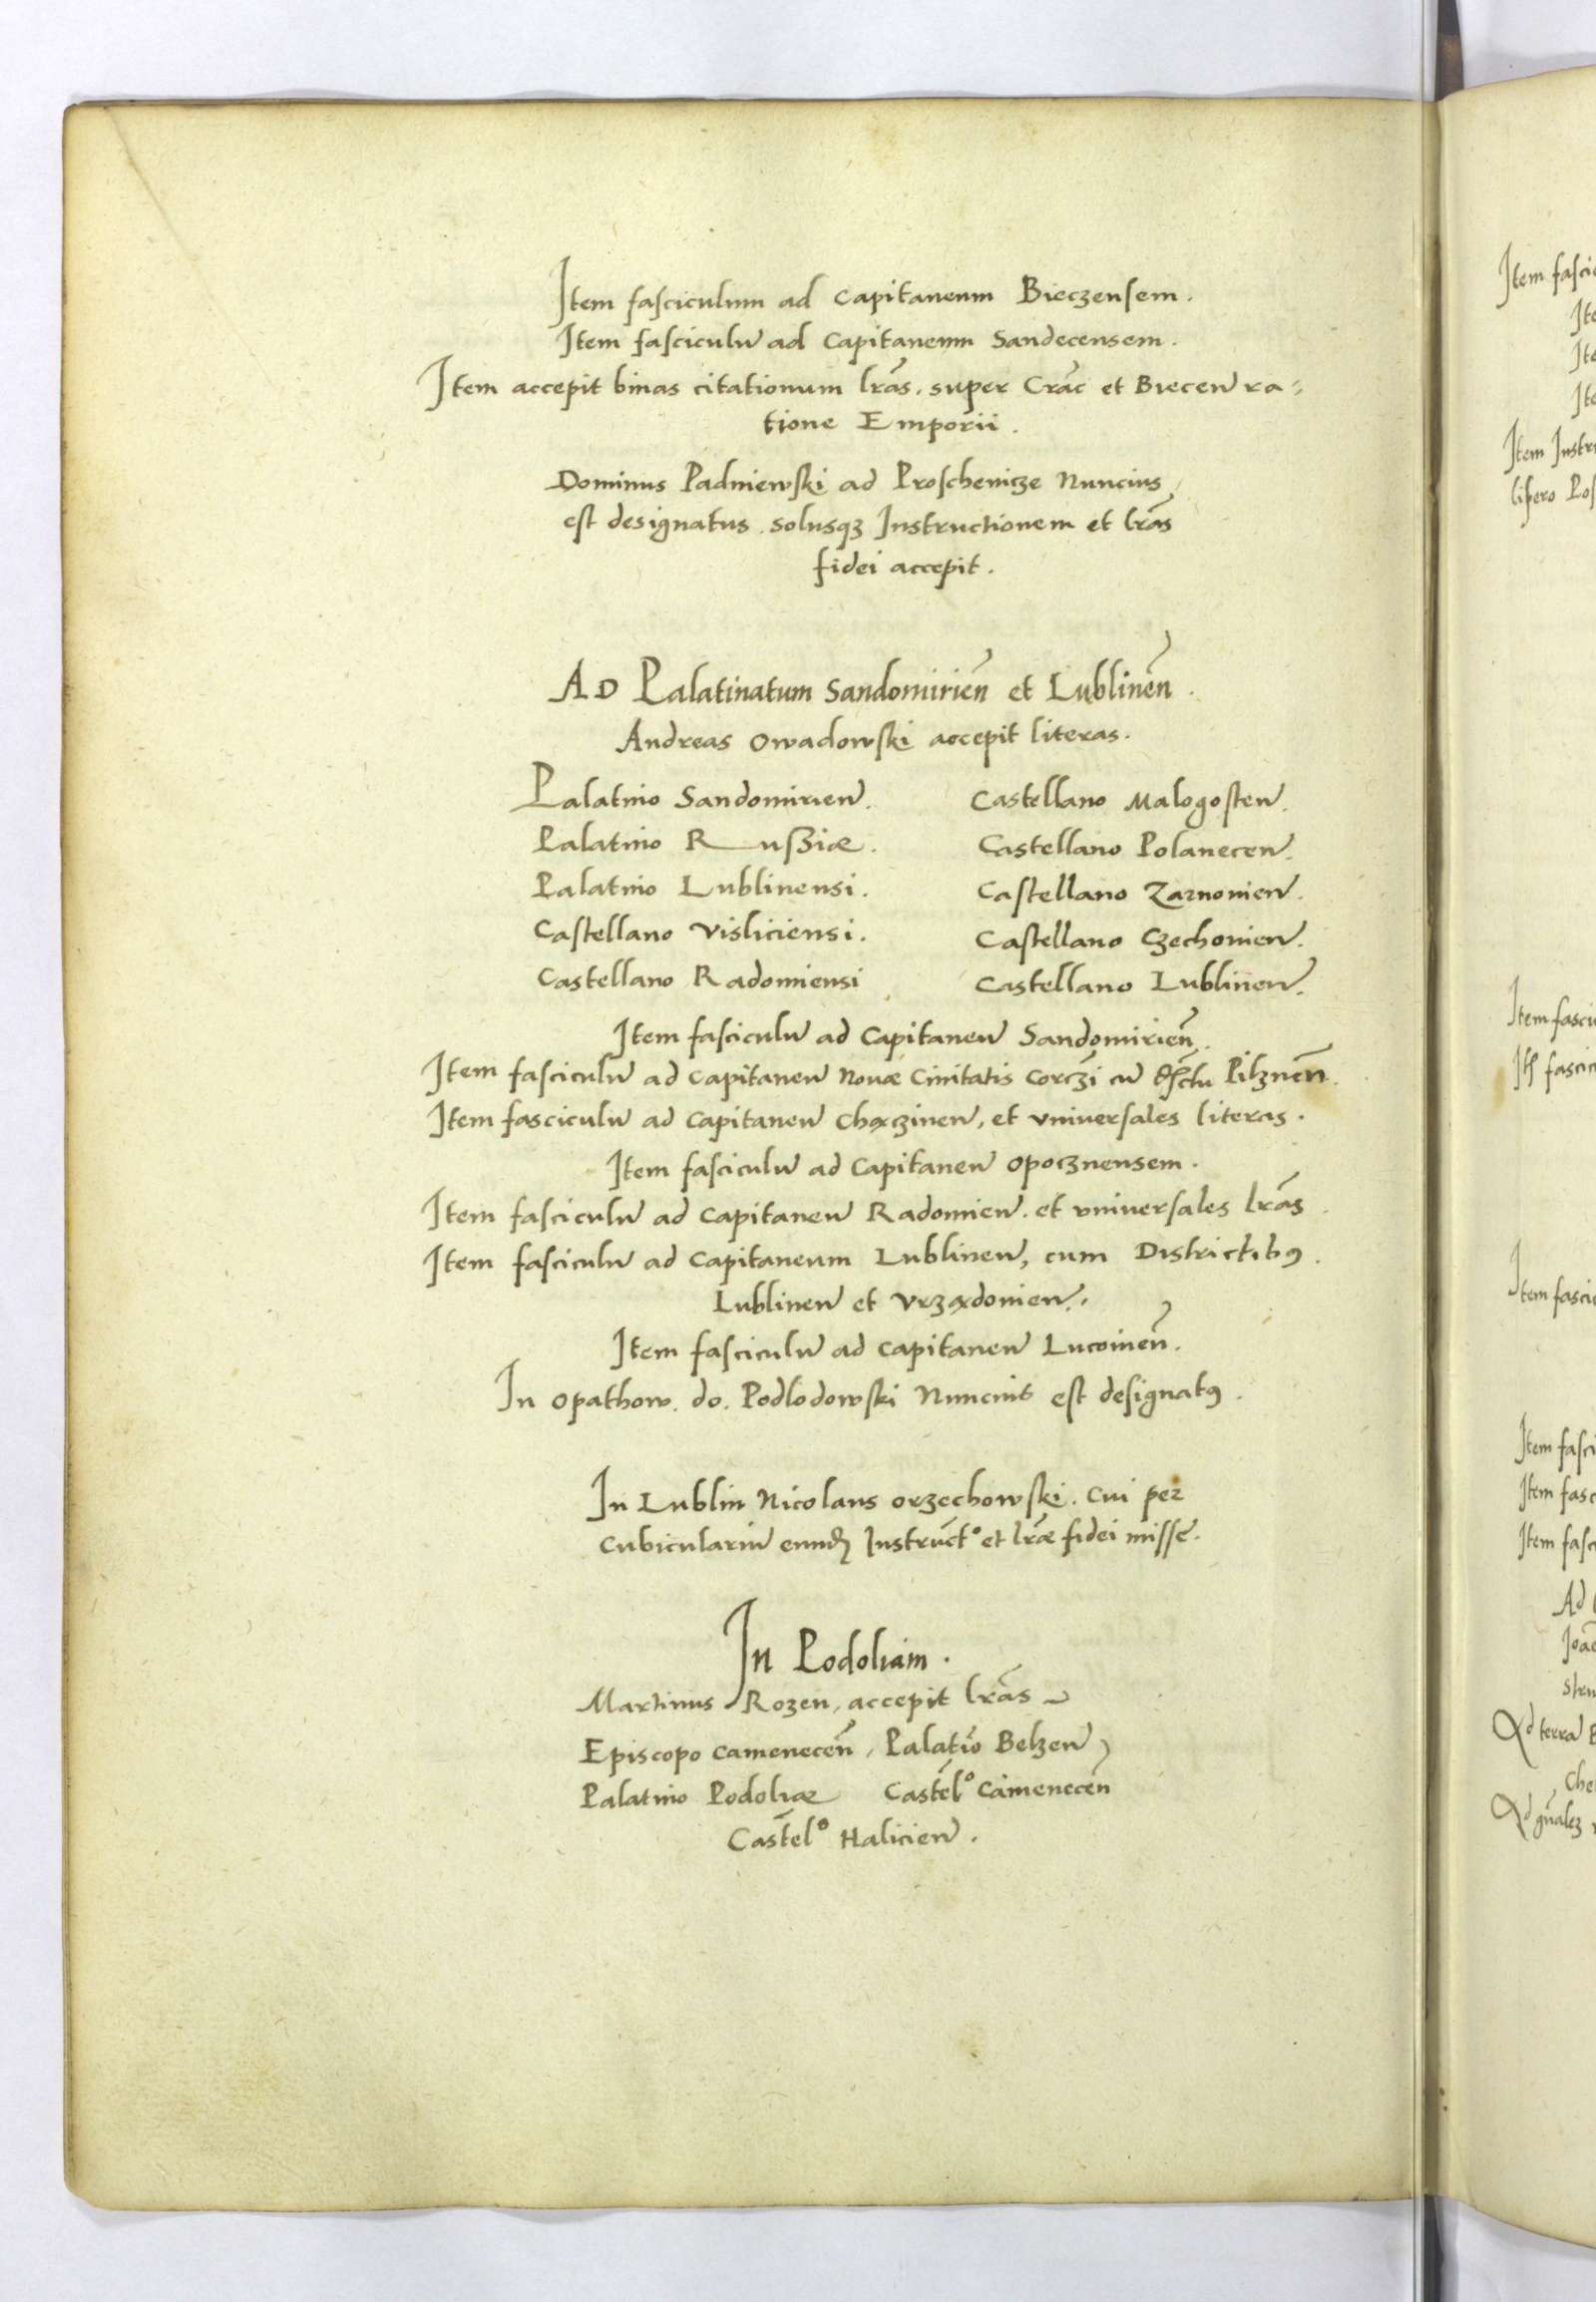 Item fasciculum ad Capitaneum Bieczensem.
Item fasciculu̅ ad Capitaneum Sandecensem.
Item accepit binas citationum lr̅as. super Crac̅ et Biecen̅ ra=
tione Emporii.
Dominus Padniewski ad Proschenicze Nuncius
est designatus. solusqꝫ Instructionem et lr̅as
fidei accepit.
AD Palatinatum Sandomirien̅ et Lublinen̅.
Andreas Owadowski accepit literas.
Palatino Sandomirien̅.
Palatino Rußiæ.
Palatino Lublinensi.
Castellano Visliciensi.
Castellano Radomiensi
Castellano Malogosten̅.
Castellano Polanecen̅.
Castellano Zarnonien̅.
Castellano Czechonien̅.
Castellano Lublinen̅.
Item fasciculu̅ ad Capitaneu̅ Sandomirien̅.
Item fasciculu̅ ad Capitaneu̅ Nouæ Ciuitatis Corczi̅ cu̅ Pilznen̅.
Item fasciculu̅ ad Capitaneu̅ Chączinen̅, et vniuersales literas.
Item fasciculu̅ ad Capitaneu̅ Opocznensem.
Item fasciculu̅ ad Capitaneu̅ Radomien̅. et vniuersales lr̅as.
Item fasciculu̅ ad Capitaneum Lublinen̅, cum Districtibꝰ.
Lublinen̅ et Vrządonien̅.
Item fasciculu̅ ad Capitaneu̅ Lucoinen̅.
In Opathow. do. Podlodowski Nuncius est designatꝰ.
In Lublin Nicolaus Orzechowski. Cui per
Cubiculariu̅ eund̅ Instruct̅º et lr̅æ fidei misse̅.
In Podoliam.
Martinus Rozen, accepit lr̅as
Episcopo Camenecen̅, Palati̅o Belzen̅
Palatino Podoliæ Castel̅º Camenecen̅
Castel̅º Halicien̅.
Item fasci
Ite
Ite
Ite
Item Instr
Item fascic
fascic
Item fasci
Item fasci
Item fasc
Item fasc
Ad
Ad terra̅
Che